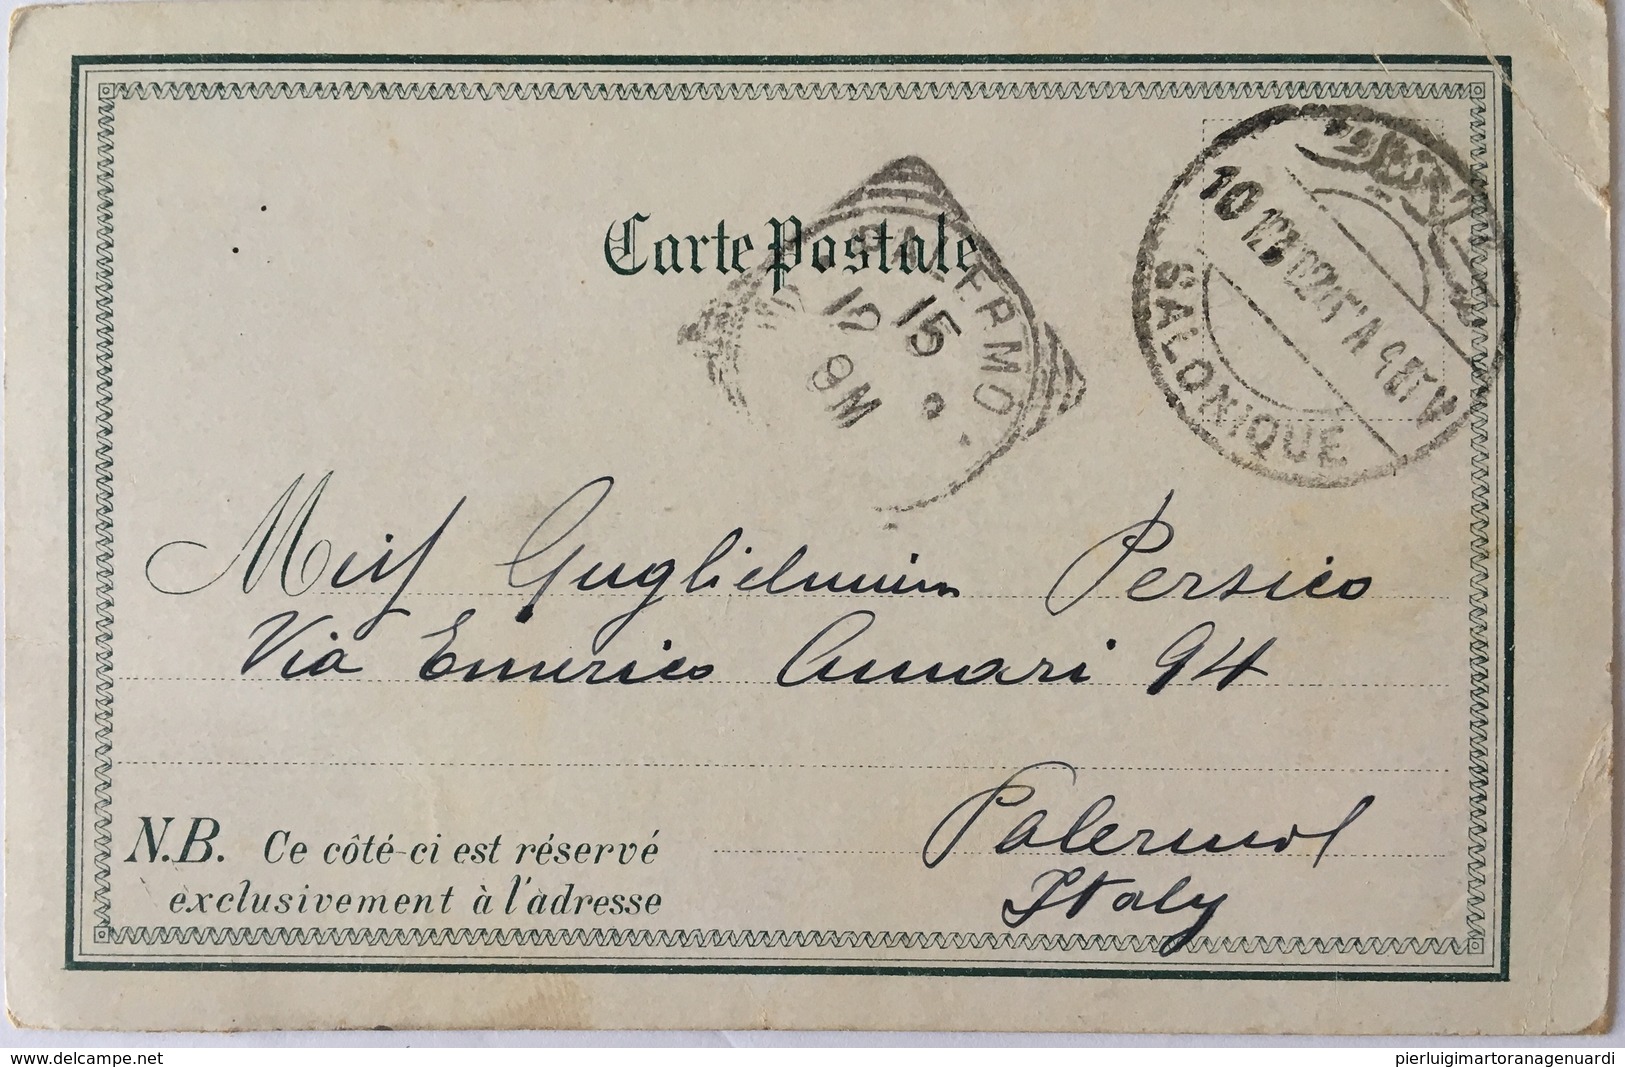 Carte Postale
PALERMO
15
12
9M
10
SALONIQUE
Miss Guglielmina Persico
Via Emerico Amari 94
Palermo
Italy
N.B. Ce côté-ci est réservé
exclusivement à l'adresse
www.delcampe.net
pierluigimartoranagenuardi